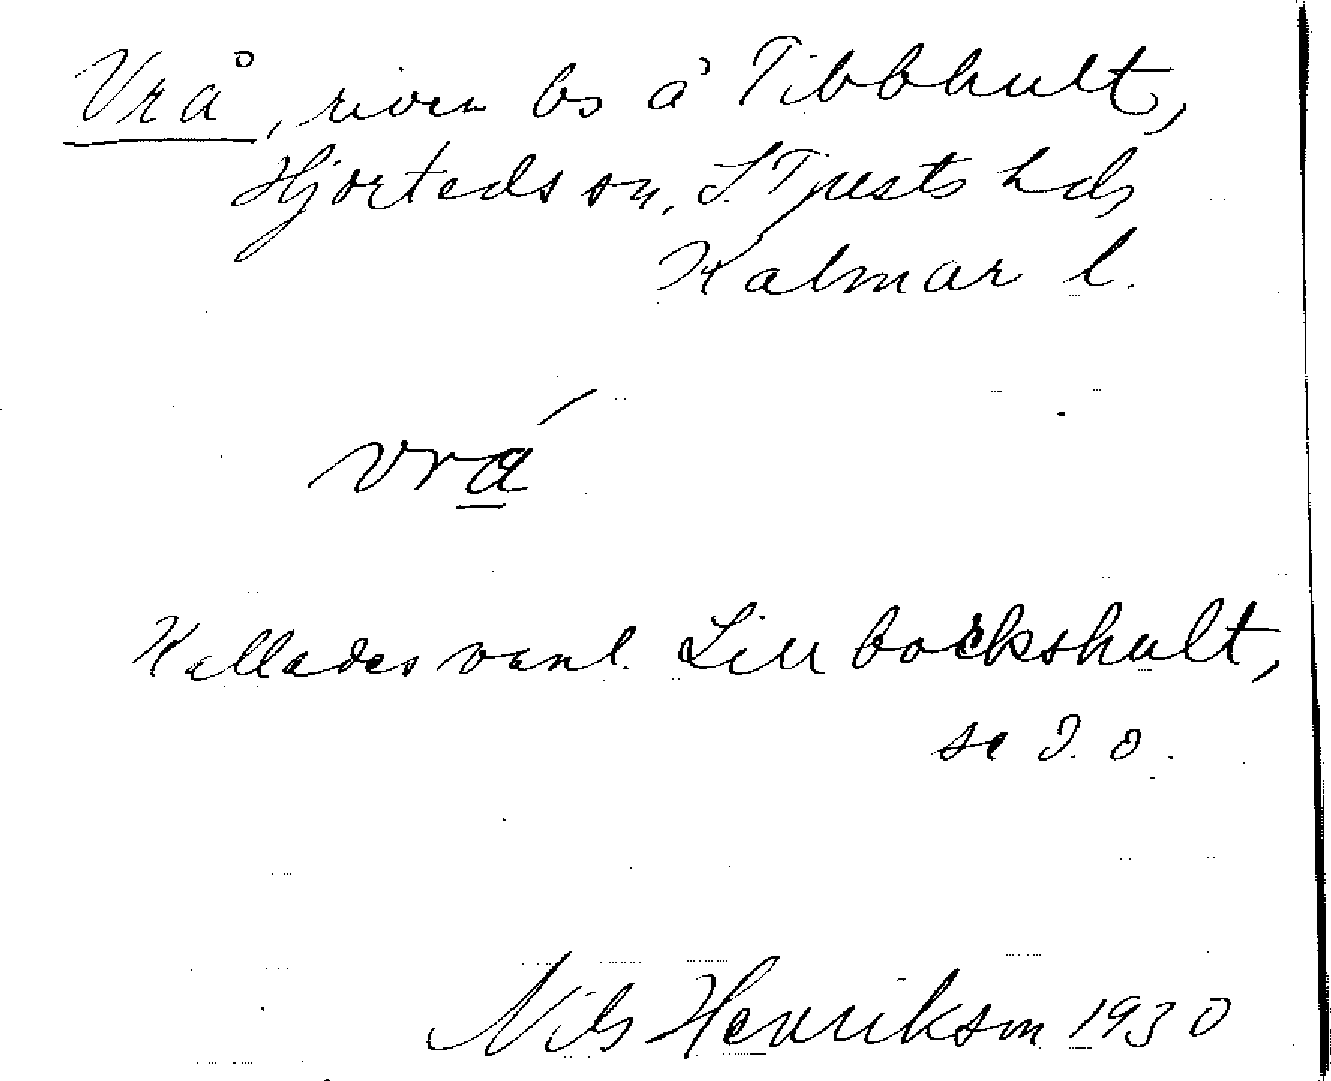 Vrå, riven bs å Tibbhult,
Hjorteds sn, S. Tjusts hds
Kalmar l.
vrá
Kallades vanl. Lill bockshult,
se d. o.
Nils Henrikson 1930